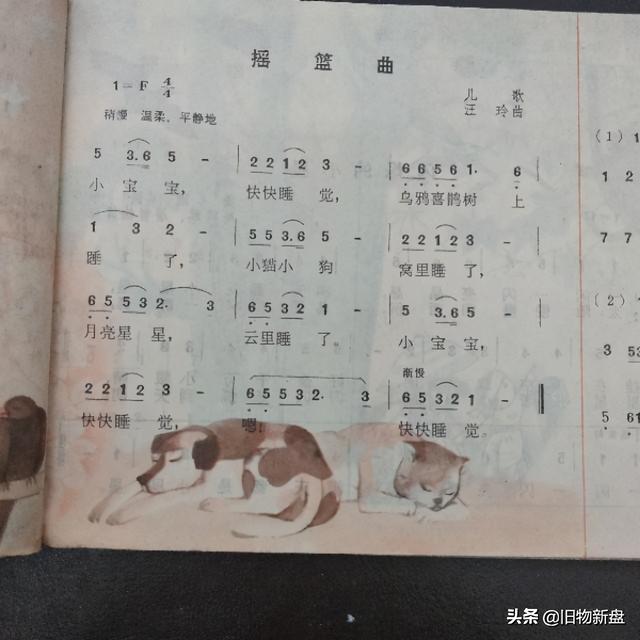 摇篮曲
1=F 4/4
儿歌
稍慢 温柔、平静地
汪玲曲
5 3.6 5 - | 2 2 1 2 3 - | 6 6 5 6 1. 6 |
小宝宝, 快快睡觉, 乌鸦喜鹊树上
1 3 2 - | 5 5 3.6 5 - | 2 2 1 2 3 - |
睡了, 小猫小狗 窝里睡了,
6 5 5 3 2. 3 | 6 5 3 2 1 - | 5 3.6 5 - |
月亮星星, 云里睡了。 小宝宝,
渐慢
2 2 1 2 3 - | 6 5 5 3 2. 3 | 6 5 3 2 1 - ‖
快快睡觉, 嗯! 快快睡觉。
(1) 1
1 2
7 7
(2) 4
3 53
5 61
头条 @旧物新盘